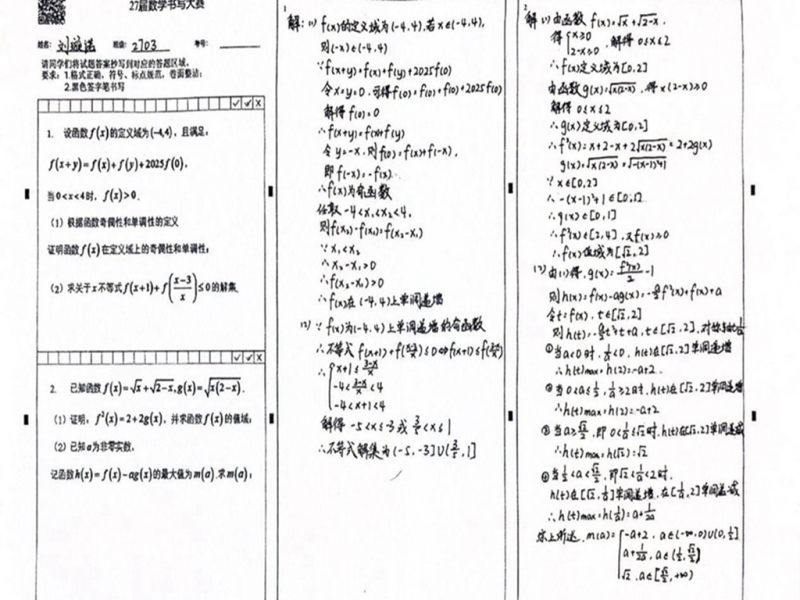 27届数学书写大赛
姓名：刘璇诺 班级：2703 考号：
请同学们将试题答案抄写到对应的答题区域。
要求：1.格式正确，符号、标点规范，卷面整洁；
2.黑色签字笔书写
1. 设函数f(x)的定义域为(-4,4)，且满足：
f(x+y)=f(x)+f(y)+2025f(0)，
当0<x<4时，f(x)>0.
（1）根据函数奇偶性和单调性的定义
证明函数f(x)在定义域上的奇偶性和单调性；
（2）求关于x不等式f(x+1)+f((x-3)/x)≤0的解集.
2. 已知函数f(x)=√x+√(2-x),g(x)=√(x(2-x)).
（1）证明，f²(x)=2+2g(x)，并求函数f(x)的值域；
（2）已知a为非零实数，
记函数h(x)=f(x)-ag(x)的最大值为m(a).求m(a)；
1
解：(1) f(x)的定义域为(-4,4),若x∈(-4,4)
则(-x)∈(-4,4)
∵f(x+y)=f(x)+f(y)+2025f(0)
令x=y=0,可得f(0)=f(0)+f(0)+2025f(0)
解得f(0)=0
∴f(x+y)=f(x)+f(y)
令y=-x,则f(0)=f(x)+f(-x),
即f(-x)=-f(x).
∴f(x)为奇函数
任取-4<x₁<x₂<4,
则f(x₂)-f(x₁)=f(x₂-x₁)
∵x₁<x₂
∴x₂-x₁>0
∴f(x₂-x₁)>0
∴f(x)在(-4,4)上单调递增
(2) ∵f(x)为(-4,4)上单调递增的奇函数
∴不等式f(x+1)+f((x-3)/x)≤0⇔f(x+1)≤f((3-x)/x)
∴{x+1≤(3-x)/x
-4<(3-x)/x<4
-4<x+1<4
解得-5<x≤-3或3/5<x≤1
∴不等式解集为(-5,-3]∪(3/5,1]
2
解(1)由函数f(x)=√x+√(2-x),
得{x≥0
2-x≥0,解得0≤x≤2
∴f(x)定义域为[0,2]
由函数g(x)=√(x(2-x)),得x(2-x)≥0
解得0≤x≤2
∴g(x)定义域为[0,2]
∴f²(x)=x+2-x+2√(x(2-x))=2+2g(x)
g(x)=√(x(2-x))=√(-(x-1)²+1)
∵x∈[0,2]
∴-(x-1)²+1∈[0,1]
∴g(x)∈[0,1]
∴f²(x)∈[2,4],又f(x)≥0
∴f(x)值域为[√2,2]
(2)由(1)得,g(x)=f²(x)/2-1
则h(x)=f(x)-ag(x)=-a/2f²(x)+f(x)+a
令t=f(x),t∈[√2,2]
则h(t)=-a/2t²+t+a,t∈[√2,2],对称轴t=1/a
①当a<0时,1/a<0,h(t)在[√2,2]单调递增
∴h(t)max=h(2)=-a+2.
②当0<a≤1/2,1/a≥2时,h(t)在[√2,2]单调递增
∴h(t)max=h(2)=-a+2
③当a≥√2/2,即0<1/a≤√2时,h(t)在[√2,2]单调递减
∴h(t)max=h(√2)=√2
④当1/2<a<√2/2,即√2<1/a<2时,
h(t)在[√2,1/a]单调递增,在[1/a,2]递减
∴h(t)max=h(1/a)=a+1/2a
综上所述,m(a)={-a+2,a∈(-∞,0)∪(0,1/2]
a+1/2a,a∈(1/2,√2/2)
√2,a∈[√2/2,+∞)